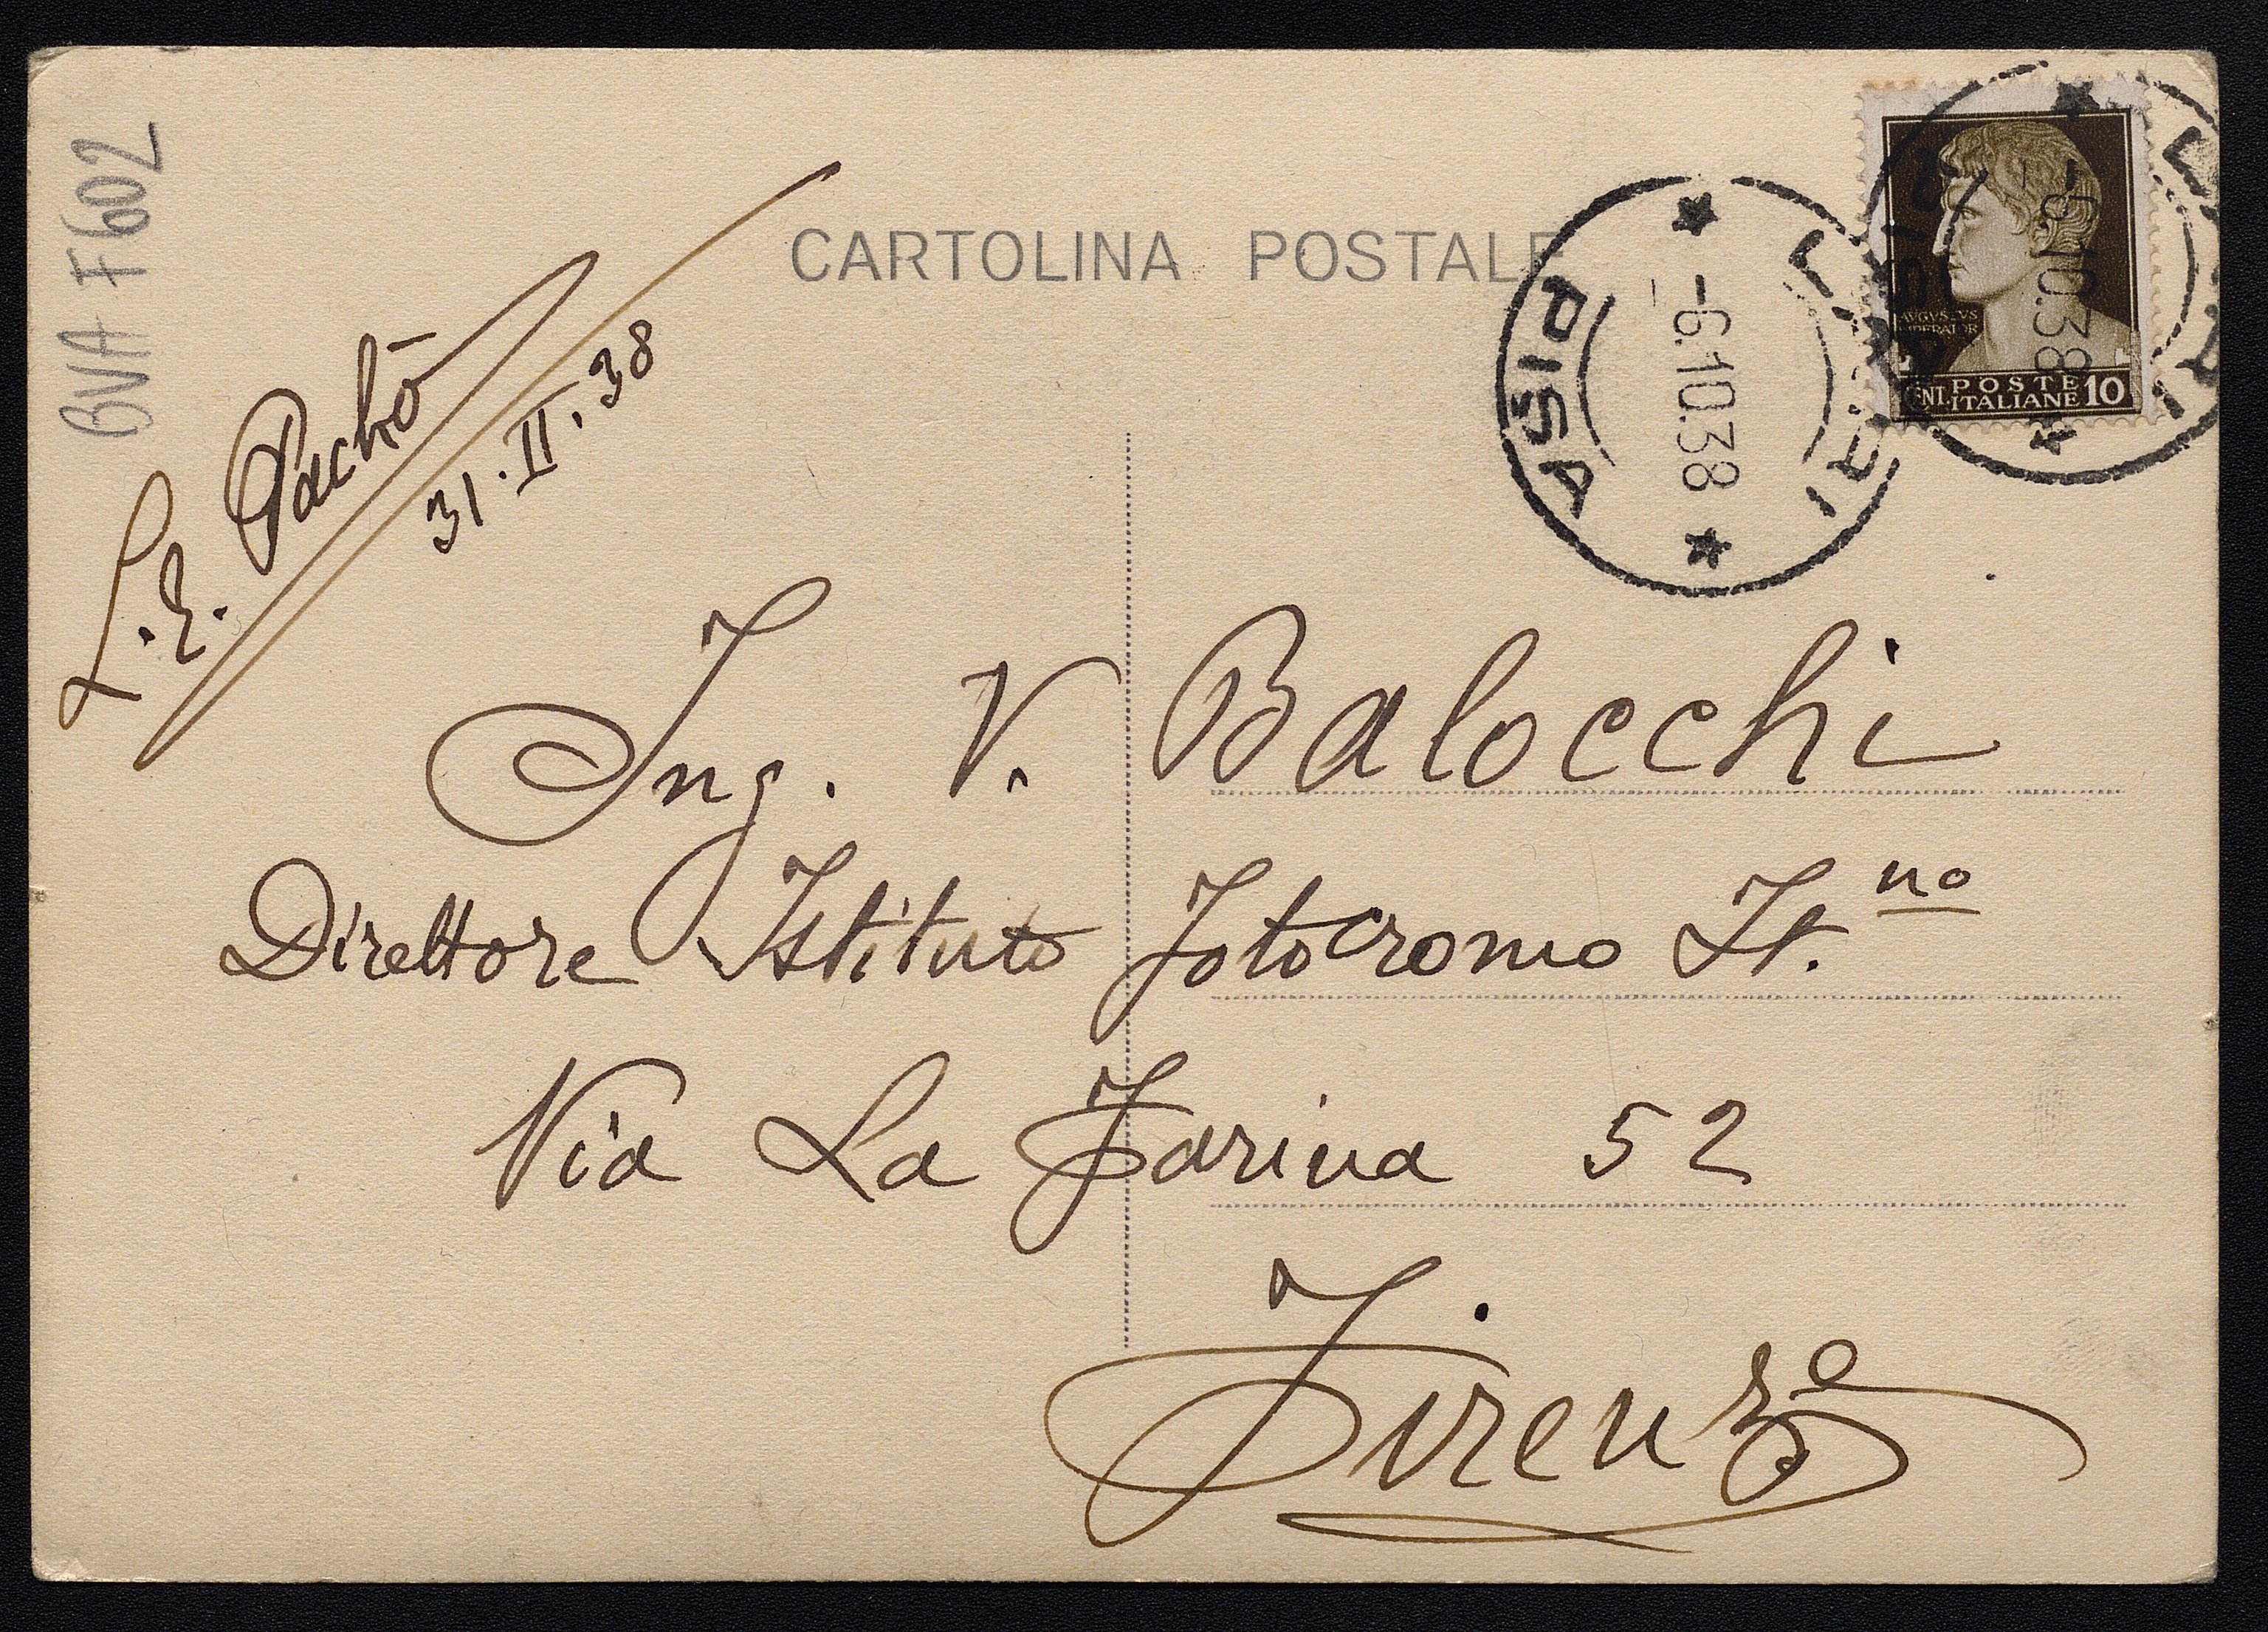 BVA F602
CARTOLINA POSTALE
L. E. Pachò
31·II·38
PISA
-6.10.38
-6.10.38
AVGVSTVS
IMPERATOR
CENT. POSTE ITALIANE 10
Ing. V. Balocchi
Direttore Istituto Fotocromo It.no
Via La Farina 52
Firenze